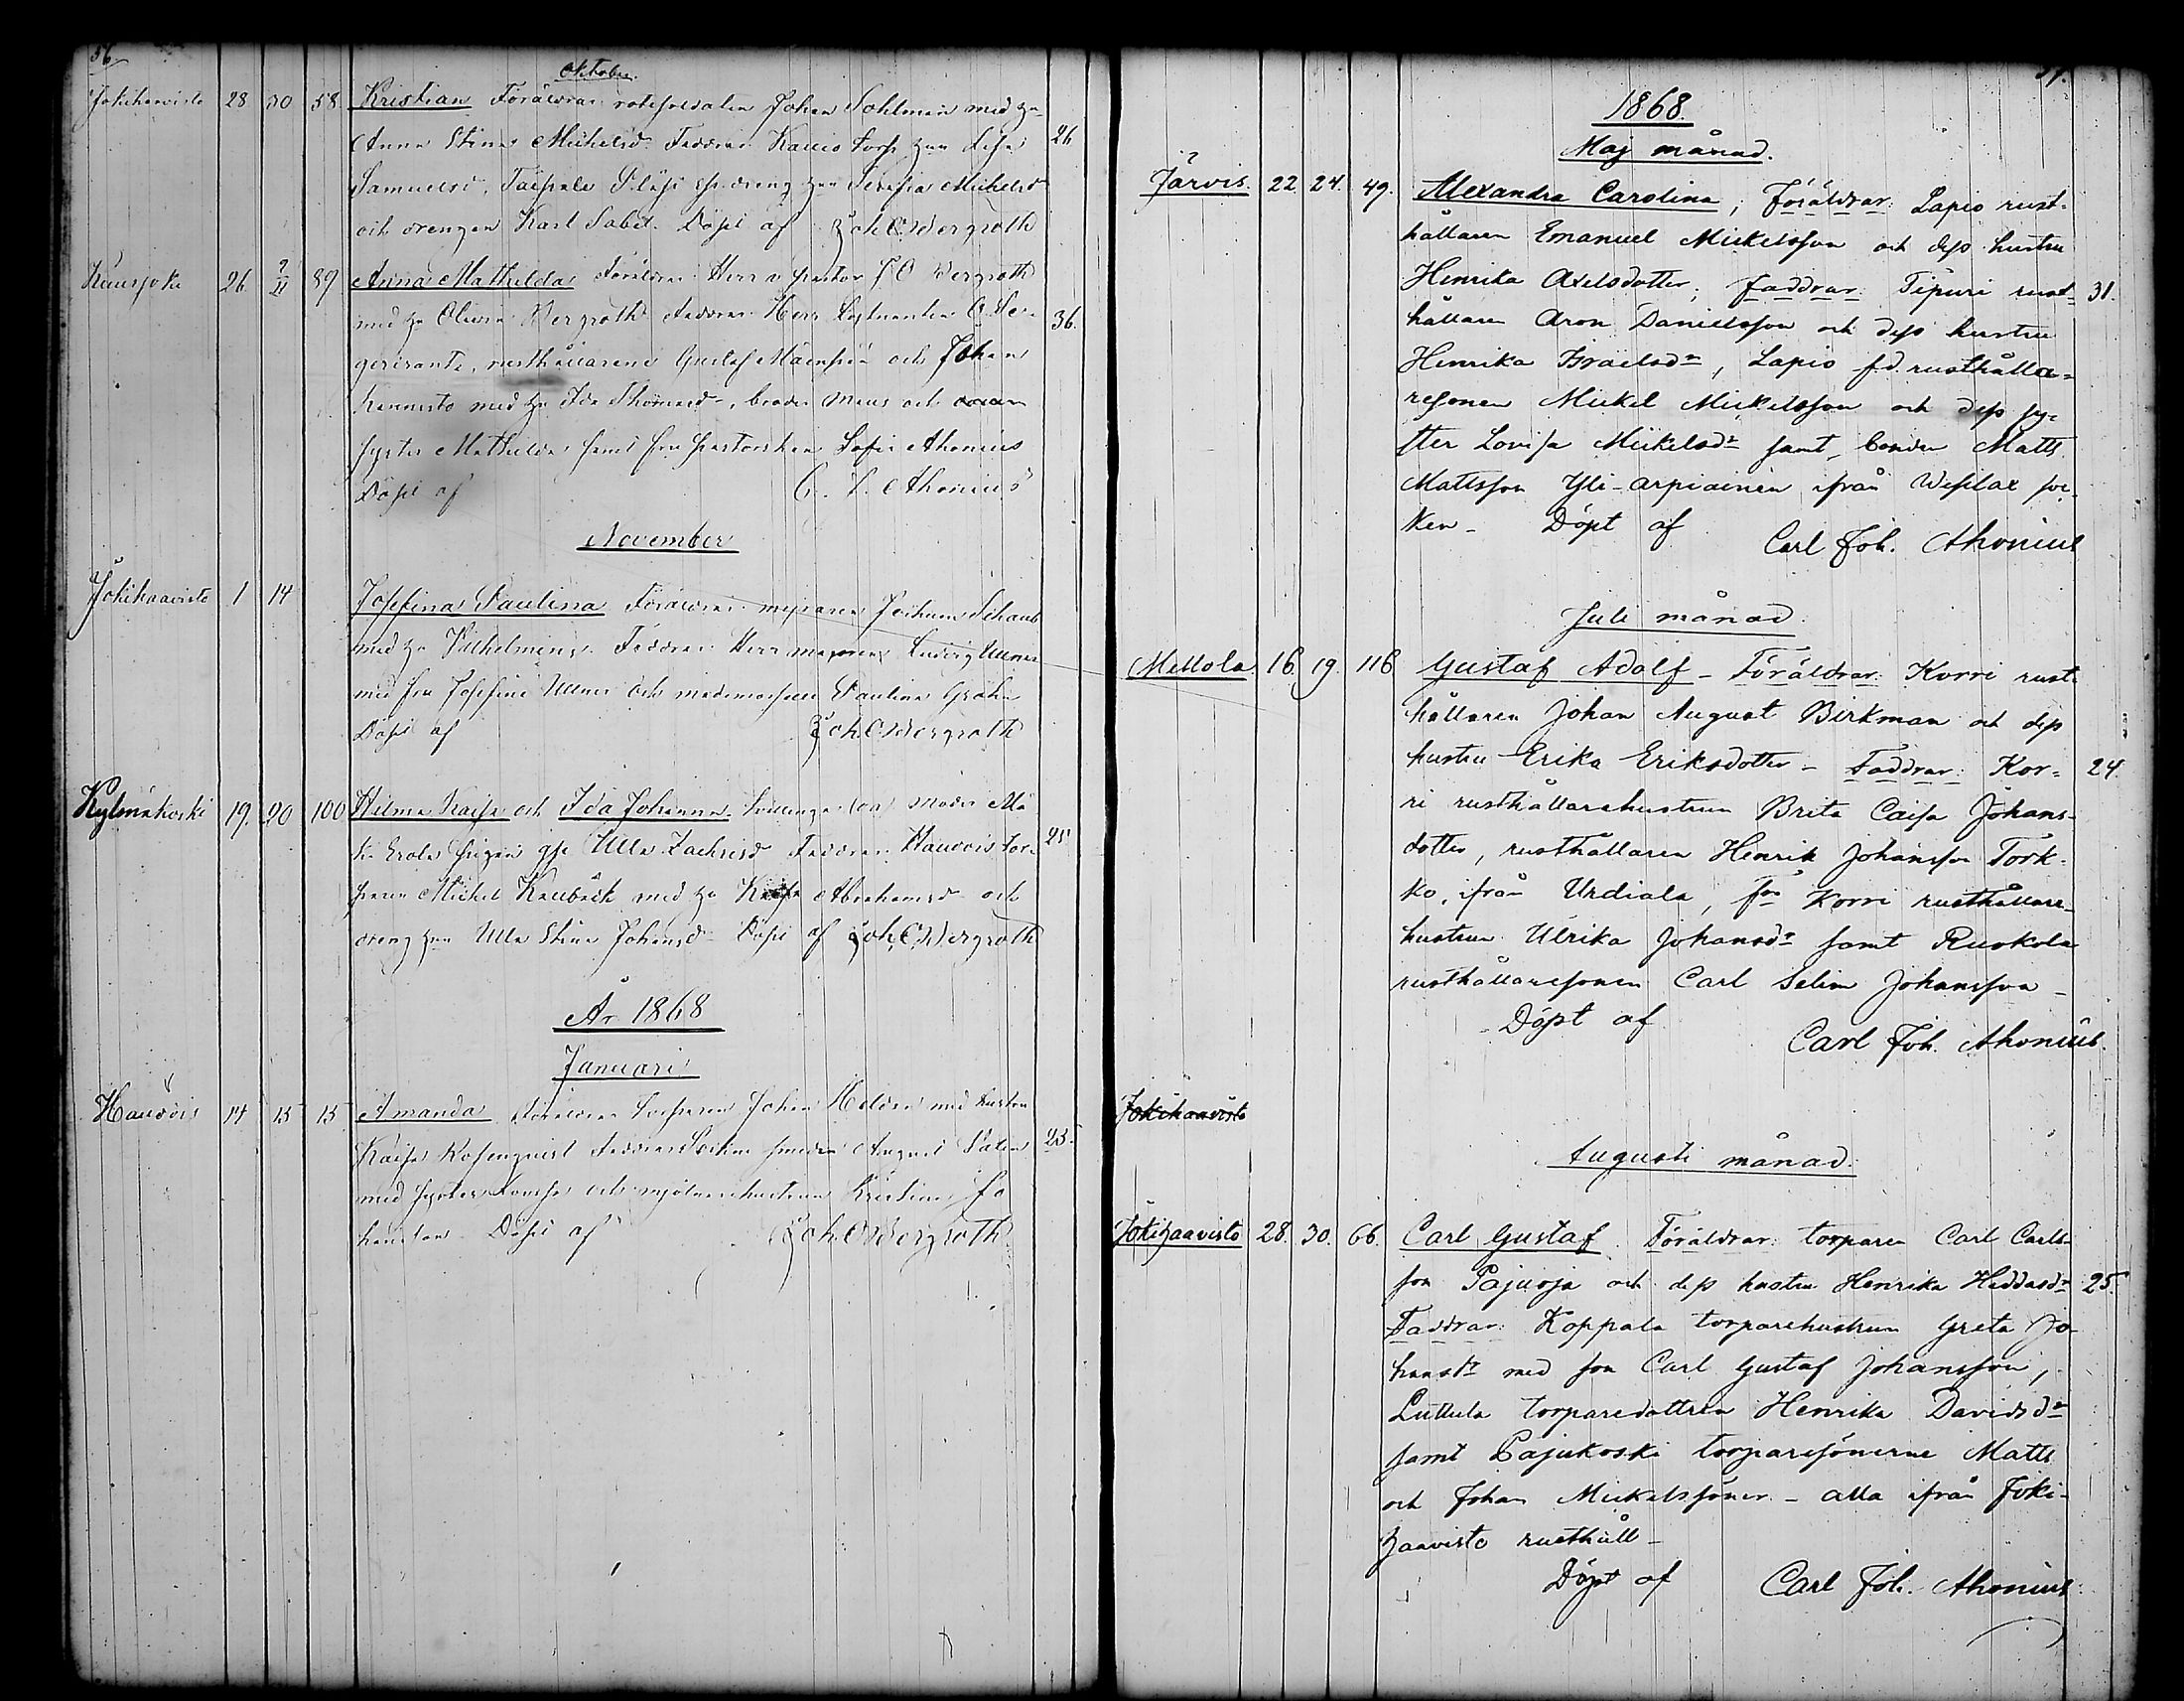 56
Oktober.
Jokihaavisto 28 30 58 Kristian Föräldrar: rotesoldaten Johan Sohlman med h
Anna Stina Michelsd Faddrar: Kauio torp 26
Samuelsd, dreng Serafia Michelsd
och drengen Karl Sabel. Döpt af Joh. O. Wergroth
26 2/11 89 Anna Mathilda Föräldrar: Herr v pastor J O Wergroth
med h Olivia Wergroth Faddrar: Herr Löjtnanten 36.
rusthållarene Gustaf och Johan
Kennisto med h Ida Thomasd, broder Maus och
syster Mathilda samt fru pastorskan Sofia Ahonius
Döpt af C. J. Ahonius
November
Jokihaavisto 1 14 Josefina Paulina Föräldrar: Jochum Schaub
med h Vilhelmina. Faddrar: Herr Ludvig Ullner
med fru Josefine Ullner och mademoiselle Paulina Gröhn
Döpt af Joh. O. Wergroth
Kylmäkoski 19. 20 100 Hilma Kajsa och Ida Johanna. tvillingar (oä) moder
pigan Ulla Zachrisd Faddrar: Haudois tor- 25
paren Michel med h Kajsa Abrahamsd och
dreng Ulla Stina Johansd Döpt af Joh. O. Wergroth
År 1868
Januari
Haudois 14 15 15 Amanda Föräldrar torparen Johan Helden med hustru
Kajsa Rosenqvist Faddrar smeden August Salin 23.
med syster och mjölnarehustrun Kristina Jo
hansdoter Döpt af Joh. O. Wergroth
57.
1868.
Maj månad.
Järvis. 22. 24. 49. Alexandra Carolina; Föräldrar: Lapio rust-
hållaren Emanuel Mickelsson och dess hustru
Henrika Axelsdotter; Faddrar: Tipuri rust- 31.
hållaren Aron Danielsson och dess hustru
Henrika Israelsdr, Lapio f.d. rusthålla-
resonen Mickel Mickelsson och dess sy-
ster Lovisa Mickelsdr samt bonden Matts
Mattsson Yli-Arpiainen ifrån Wesilax soc-
ken - Döpt af Carl Joh. Ahonius
Juli månad.
Mellola. 16. 19. 116 Gustaf Adolf - Föräldrar: Korri rust-
hållaren Johan August Birkman och dess
hustru Erika Eriksdotter - Faddrar: Kor- 24.
ri rusthållarehustrun Brita Caisa Johans-
dotter, rusthållaren Henrik Johansson Tork-
ko, ifrån Urdiala, Korri rusthållare-
hustrun Ulrika Johansdr samt Ruokola
rusthållaresonen Carl Selim Johansson -
Döpt af
Carl Joh. Ahonius.
Jokihaavisto
Augusti månad.
Jokihaavisto 28. 30. 66. Carl Gustaf Föräldrar: torparen Carl Carls-
son Pajuoja och dess hustru Henrika Heddasdr 25.
Faddrar: Koppala torparehustrun Greta Jo-
hansdr med son Carl Gustaf Johansson,
Luttula torparedottren Henrika Davidsdr
samt Pajukoski torparesönerne Matts
och Johan Mickelssöner - alla ifrån Joki-
haavisto rusthåll -
Döpt af Carl Joh. Ahonius